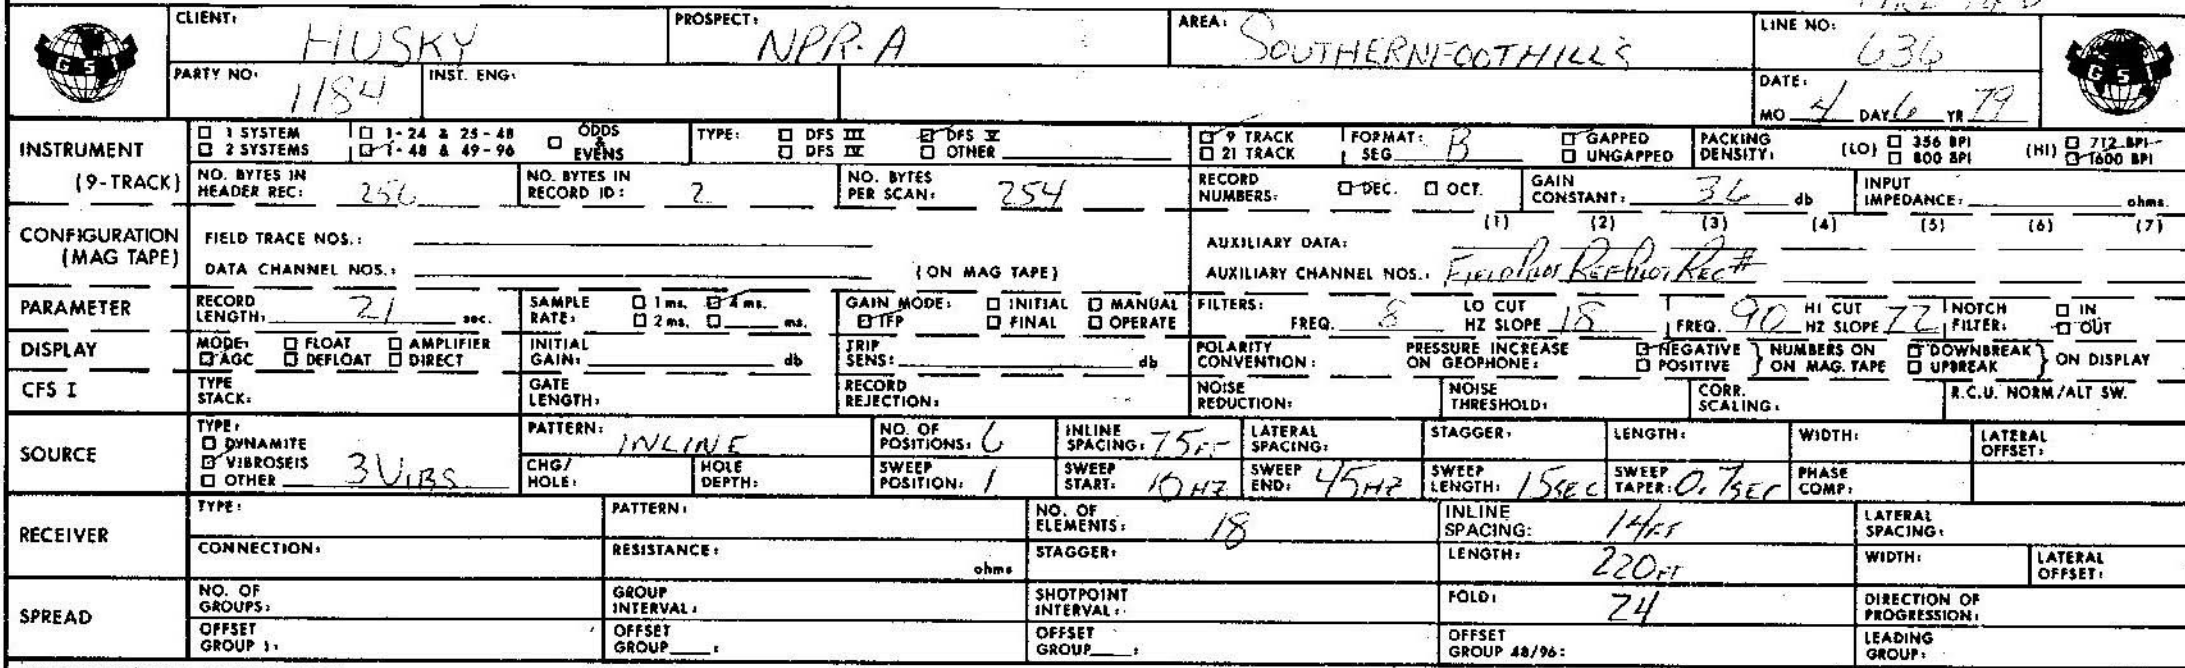 CLIENT: HUSKY PROSPECT: NPR-A AREA: SOUTHERN FOOTHILLS LINE NO: 636
GSI GSI
PARTY NO: 1184 INST. ENG: DATE: MO 4 DAY 6 YR 79
INSTRUMENT (9-TRACK)
☐ 1 SYSTEM ☐ 1-24 & 25-48 ☐ ODDS & EVENS TYPE: ☐ DFS III ☑ DFS V ☑ 9 TRACK FORMAT: SEG B ☑ GAPPED PACKING DENSITY: (LO) ☐ 356 BPI (HI) ☐ 712 BPI
☐ 2 SYSTEMS ☑ 1-48 & 49-96 ☐ DFS IV ☐ OTHER ☐ 21 TRACK ☐ UNGAPPED ☐ 800 BPI ☑ 1600 BPI
NO. BYTES IN HEADER REC: 256 NO. BYTES IN RECORD ID: 2 NO. BYTES PER SCAN: 254 RECORD NUMBERS: ☑ DEC. ☐ OCT. GAIN CONSTANT: 36 db INPUT IMPEDANCE: ohms.
CONFIGURATION (MAG TAPE)
(1) (2) (3) (4) (5) (6) (7)
FIELD TRACE NOS.: AUXILIARY DATA:
DATA CHANNEL NOS.: (ON MAG TAPE) AUXILIARY CHANNEL NOS.: FIELD PILOT REF PILOT REC #
PARAMETER
RECORD LENGTH: 21 sec. SAMPLE RATE: ☐ 1 ms. ☑ 4 ms. ☐ 2 ms. ☐ ms. GAIN MODE: ☐ INITIAL ☐ MANUAL ☑ IFP ☐ FINAL ☐ OPERATE FILTERS: FREQ. 8 LO CUT HZ SLOPE 18 FREQ. 90 HI CUT HZ SLOPE 72 NOTCH FILTER: ☐ IN ☑ OUT
DISPLAY
MODE: ☐ FLOAT ☐ AMPLIFIER ☑ AGC ☐ DEFLOAT ☐ DIRECT INITIAL GAIN: db TRIP SENS: db POLARITY CONVENTION: PRESSURE INCREASE ON GEOPHONE: ☑ NEGATIVE ☐ POSITIVE } NUMBERS ON ON MAG. TAPE ☑ DOWNBREAK ☐ UPBREAK } ON DISPLAY
CFS I
TYPE STACK: GATE LENGTH: RECORD REJECTION: NOISE REDUCTION: NOISE THRESHOLD: CORR. SCALING: R.C.U. NORM/ALT SW.
SOURCE
TYPE: ☐ DYNAMITE ☑ VIBROSEIS ☐ OTHER 3 VIBS
PATTERN: INLINE NO. OF POSITIONS: 6 INLINE SPACING: 75 FT LATERAL SPACING: STAGGER: LENGTH: WIDTH: LATERAL OFFSET:
CHG/HOLE: HOLE DEPTH: SWEEP POSITION: 1 SWEEP START: 10 HZ SWEEP END: 45 HZ SWEEP LENGTH: 15 SEC SWEEP TAPER: 0.7 SEC PHASE COMP:
RECEIVER
TYPE: PATTERN: NO. OF ELEMENTS: 18 INLINE SPACING: 14 FT LATERAL SPACING:
CONNECTION: RESISTANCE: ohms STAGGER: LENGTH: 220 FT WIDTH: LATERAL OFFSET:
SPREAD
NO. OF GROUPS: GROUP INTERVAL: SHOTPOINT INTERVAL: FOLD: 24 DIRECTION OF PROGRESSION:
OFFSET GROUP 1: OFFSET GROUP : OFFSET GROUP : OFFSET GROUP 48/96: LEADING GROUP: